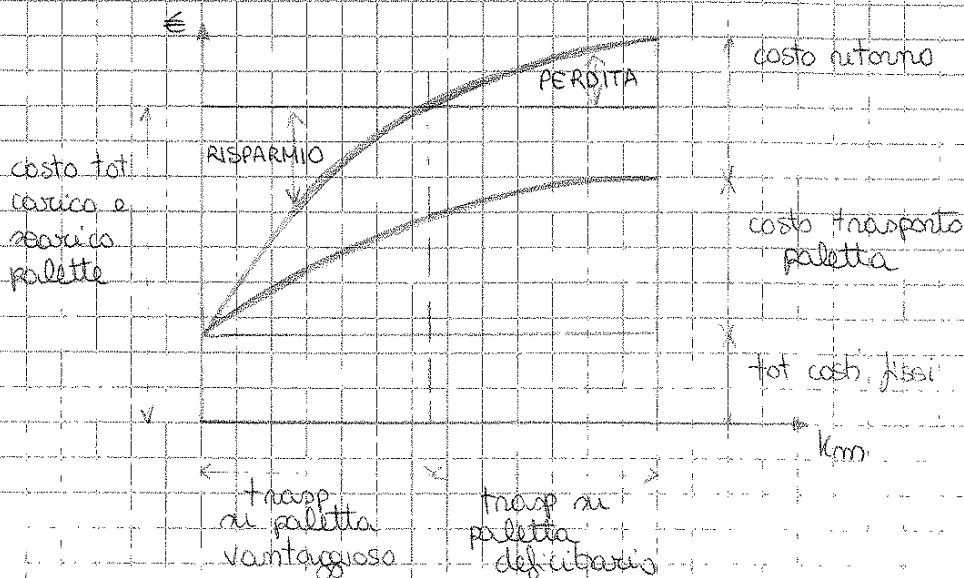 €
costo ritorno
PERDITA
RISPARMIO
costo tot
carico e
scarico
palette
costo trasporto
paletta
tot costi fissi
Km
trasp
su paletta
vantaggioso
trasp su
paletta
deficitario